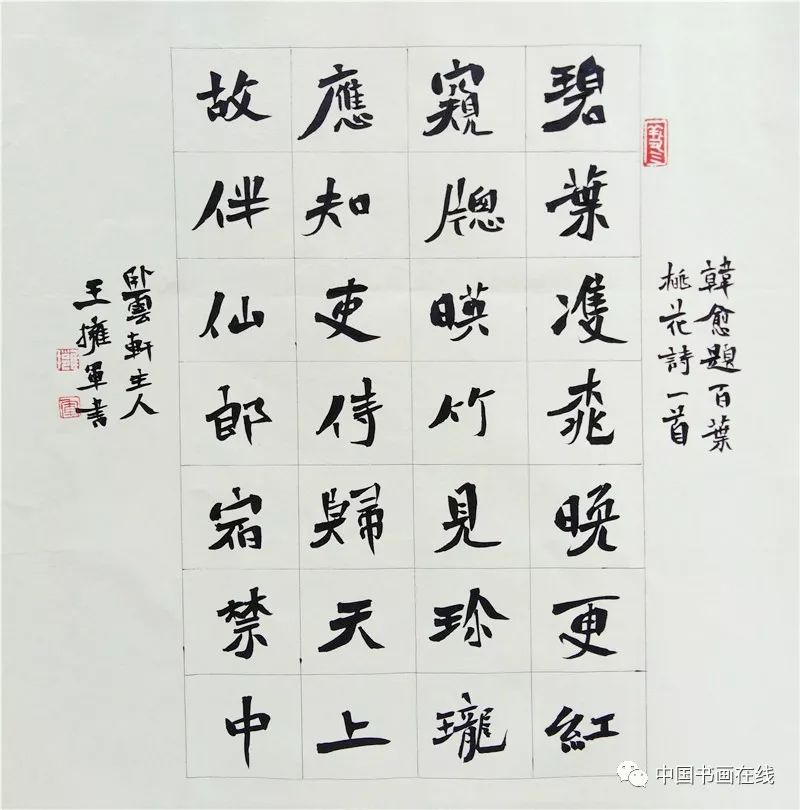 韓愈題百葉
桃花詩一首
碧葉雙桃晚更紅
窺牎暎竹見珍瓏
應知吏侍歸天上
故伴仙郎宿禁中
卧雲軒主人
王擁軍書
中国书画在线